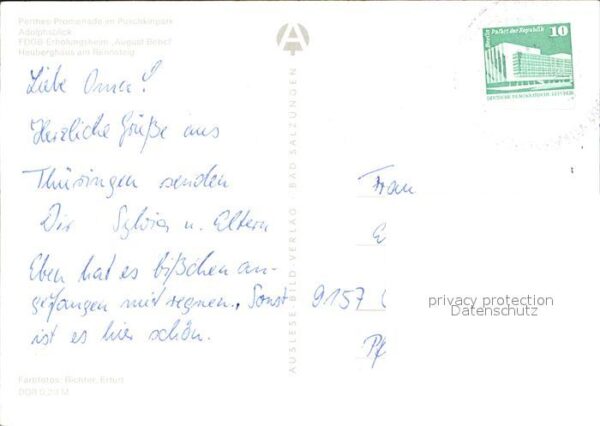 Perthes-Promenade im Puschkinpark
Adolphsblick
FDGB-Erholungsheim „August Bebel"
Heuberghaus am Rennsteig
Liebe Oma!
Herzliche Grüße aus
Thüringen senden
Dir Sylvia u. Eltern
Eben hat es bißchen an-
gefangen mit regnen. Sonst
ist es hier schön.
Farbfotos: Richter, Erfurt
AUSLESE-BILD-VERLAG · BAD SALZUNGEN
Berlin Palast der Republik 10
DEUTSCHE DEMOKRATISCHE REPUBLIK
Frau
E
9157
Pf
privacy protection
Datenschutz